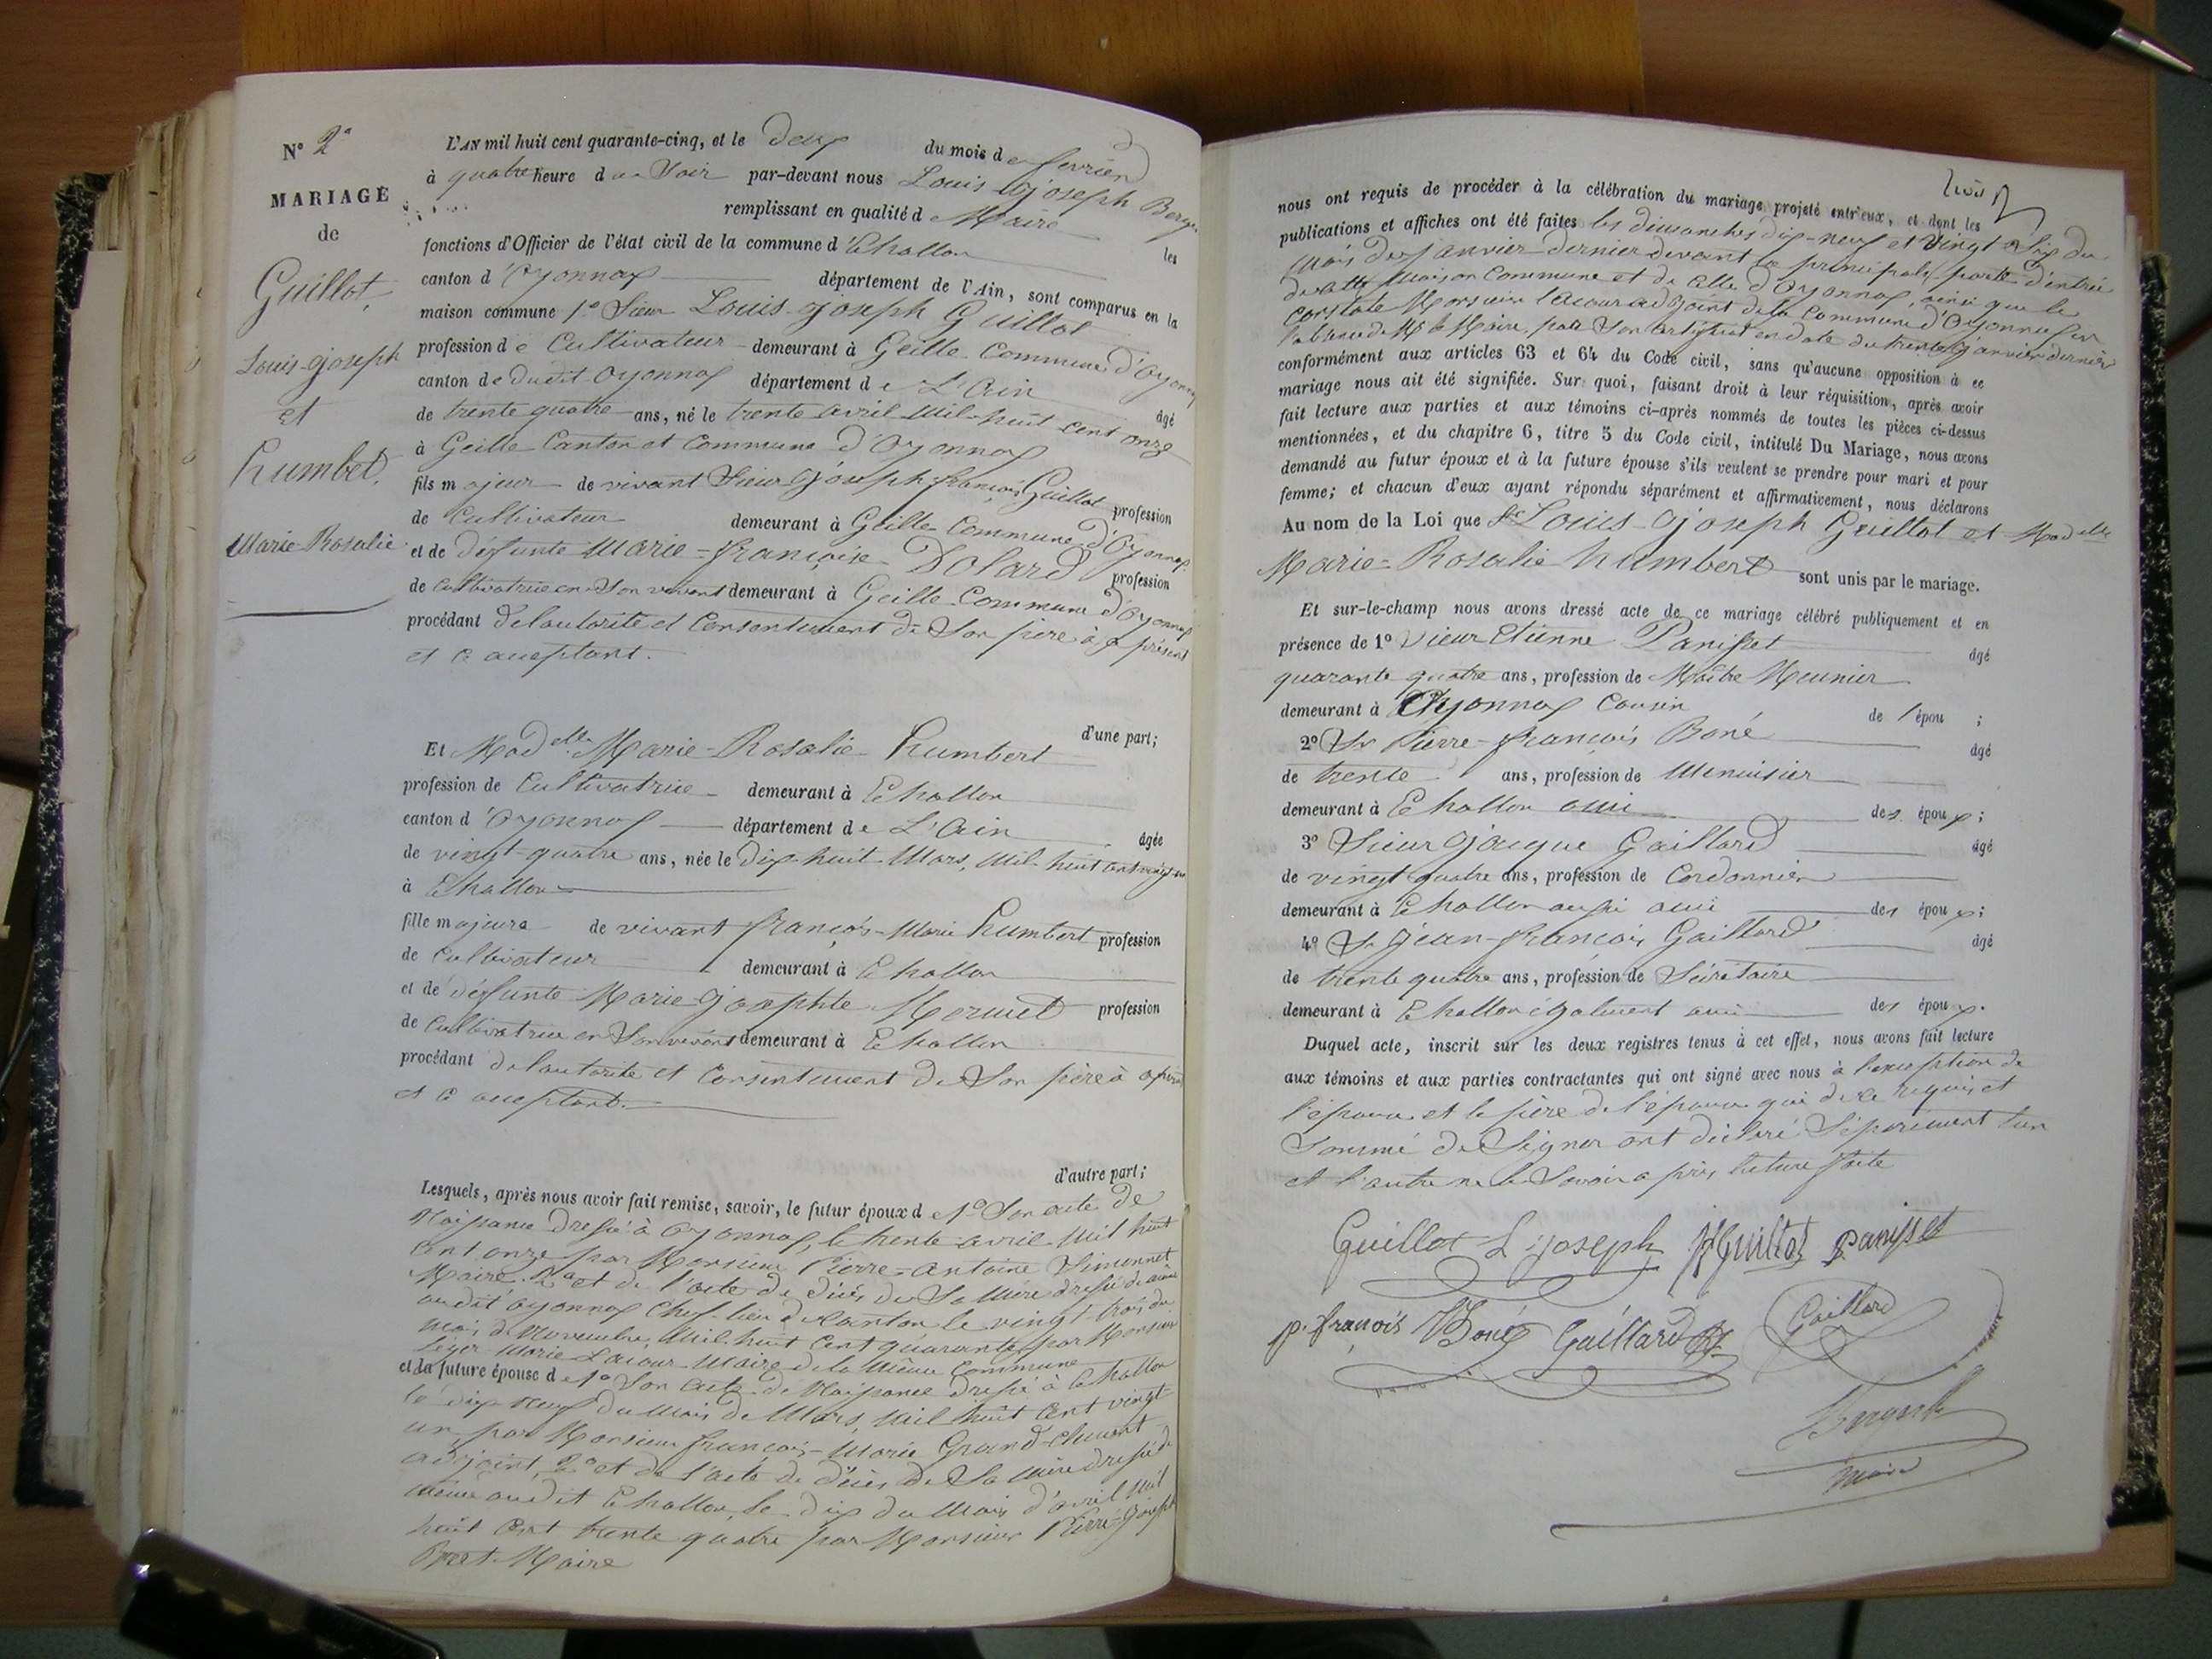 N° 2e
MARIAGE
de
Guillot,
Louis-joseph
et
humbert.
Marie-Rosalie
L'AN mil huit cent quarante-cinq, et le deux du mois de fevrier
à quatre heure du Soir par-devant nous Louis joseph
remplissant en qualité de Maire les
fonctions d'Officier de l'état civil de la commune d'Echallon
canton d'Oyonnax département de l'Ain, sont comparus en la
maison commune 1° Sieur Louis-joseph Guillot
profession de Cultivateur demeurant à Geille Commune d'Oyonnax
canton de dudit Oyonnax département de L'Ain âgé
de trente quatre ans, né le trente avril mil-huit-cent onze
à Geille Canton et Commune d'Oyonnax
fils majeur de vivant Sieur joseph françois Guillot profession
de Cultivateur demeurant à Geille Commune d'Oyonnax
et de défunte Marie-françoise Dolard profession
de cultivatrice en Son vivant demeurant à Geille Commune d'Oyonnax
procédant de lautorité et Consentement de Son père à ce présent
et ce aceptant.
d'une part;
Et Madelle Marie-Rosalie humbert
profession de Cultivatrice demeurant à Echallon
canton d'Oyonnax département de L'Ain âgée
de vingt-quatre ans, née le Dix huit Mars, Mil huit cent vingt un
à Echallon
fille majeure de vivant françois-Marie humbert profession
de Cultivateur demeurant à Echallon
et de défunte Marie josephte Mermet profession
de Cultivatrice en Son vivant demeurant à Echallon
procédant de lautorité et Consentement de Son père à
et ce aceptant.
d'autre part;
Lesquels, après nous avoir fait remise, savoir, le futur époux de 1° Son acte de
Naissance dressé à Oyonnax, le trente avril Mil huit
Cent onze par Monsieur Pierre-Antoine Simonnet
Maire. 2° et de l'acte de décès de Sa Mère dressé de même
audit Oyonnax Chef-lieu de Canton le vingt trois du
mois de Novembre, Mil-huit Cent quarante par Monsieur
Léger Marie Lacour Maire de la Même Commune
et la future épouse de 1° Son acte de Naissance dressé à Echallon
le dix neuf du mois de Mars, Mil huit Cent vingt-
un par Monsieur françois-Marie Grand-clément
adjoint, 2° et de l'acte de décès de Sa Mère dressé de
même audit Echallon, le dix du Mois d'avril Mil
huit Cent trente quatre par Monsieur Pierre-joseph
Maire
trois
nous ont requis de procéder à la célébration du mariage projeté entr'eux, et dont les
publications et affiches ont été faites les dimanches dix-neuf et Vingt-Six du
Mois de janvier dernier devant la principale porte d'entrée
de cette Maison Commune et de celle d'Oyonnax, ainsi que le
constate Monsieur Lacour adjoint de la Commune d'Oyonnax en
l'absence de Mr le Maire, par Son certificat en date du trente janvier dernier
conformément aux articles 63 et 64 du Code civil, sans qu'aucune opposition à ce
mariage nous ait été signifiée. Sur quoi, faisant droit à leur réquisition, après avoir
fait lecture aux parties et aux témoins ci-après nommés de toutes les pièces ci-dessus
mentionnées, et du chapitre 6, titre 5 du Code civil, intitulé Du Mariage, nous avons
demandé au futur époux et à la future épouse s'ils veulent se prendre pour mari et pour
femme; et chacun d'eux ayant répondu séparément et affirmativement, nous déclarons
Au nom de la Loi que Sr Louis-joseph Guillot et Madelle
Marie-Rosalie humbert sont unis par le mariage.
Et sur-le-champ nous avons dressé acte de ce mariage célébré publiquement et en
présence de 1° Sieur Etienne Panisset âgé
quarante quatre ans, profession de Maitre Meunier
demeurant à Oyonnax Cousin de l'épou ;
2° Sr Pierre-françois Boné âgé
de trente ans, profession de Menuisier
demeurant à Echallon ami des époux;
3° Sieur jacque Gaillard âgé
de vingt quatre ans, profession de Cordonnier
demeurant à Echallon aussi ami des époux;
4° Sr jean-françois Gaillard âgé
de trente quatre ans, profession de Sécretaire
demeurant à Echallon également ami des époux.
Duquel acte, inscrit sur les deux registres tenus à cet effet, nous avons fait lecture
aux témoins et aux parties contractantes qui ont signé avec nous à l'exception de
l'épouse et le père de l'épouse qui de ce requis et
Sommé de Signer ont déclaré Séparément l'un
et l'autre ne le Savoir après lecture faite
Guillot L joseph Guillot panisset
p. françois Boné Gaillard Gaillard
Maire